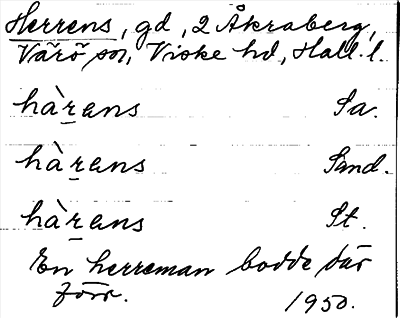 Herrens, gd, 2 Åkraberg,
Värö sn, Viske hd, Hall. l.
hàrens Sa.
hàrens Sand.
hàrens St.
En herreman bodde där
förr. 1950.